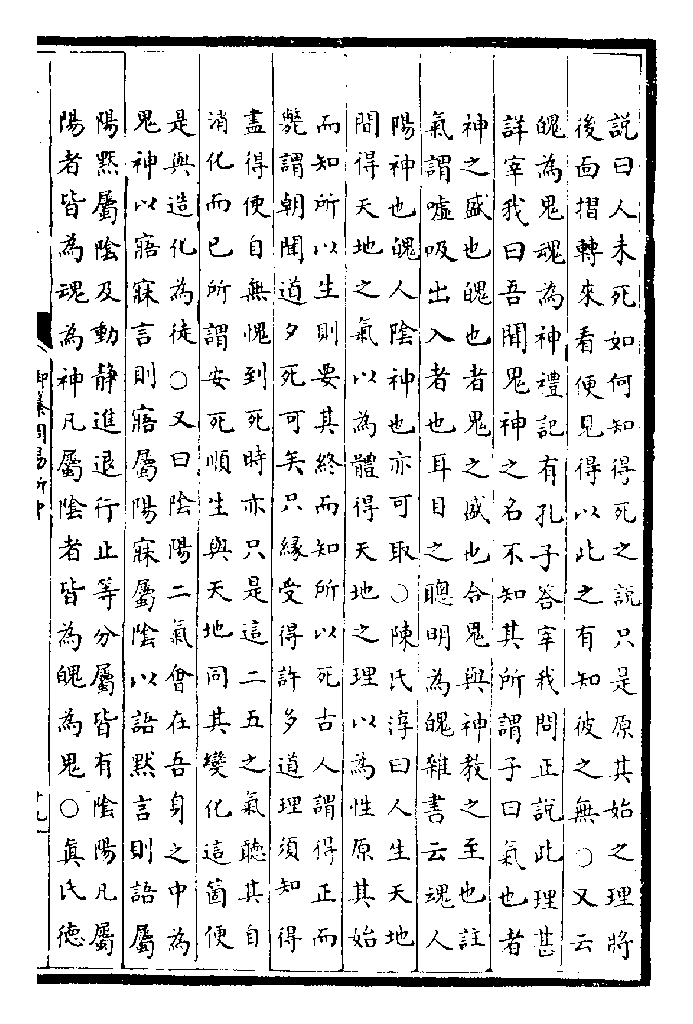 説曰人未死如何知得死之説只是原其始之理將
後面摺轉來看便見得以此之有知彼之無○又云
魄為鬼魂為神禮記有孔子答宰我問正説此理甚
詳宰我曰吾聞鬼神之名不知其所謂子曰氣也者
神之盛也魄也者鬼之盛也合鬼與神教之至也註
氣謂噓吸出入者也耳目之聰明為魄雜書云魂人
陽神也魄人陰神也亦可取○陳氏淳曰人生天地
間得天地之氣以為體得天地之理以為性原其始
而知所以生則要其終而知所以死古人謂得正而
斃謂朝聞道夕死可矣只縁受得許多道理須知得
盡得便自無愧到死時亦只是這二五之氣聽其自
消化而已所謂安死順生與天地同其變化這箇便
是與造化為徒○又曰陰陽二氣會在吾身之中為
鬼神以寤寐言則寤屬陽寐屬陰以語黙言則語屬
陽黙屬陰及動靜進退行止等分屬皆有陰陽凡屬
陽者皆為魂為神凡屬陰者皆為魄為鬼○真氏德
御纂周易折中